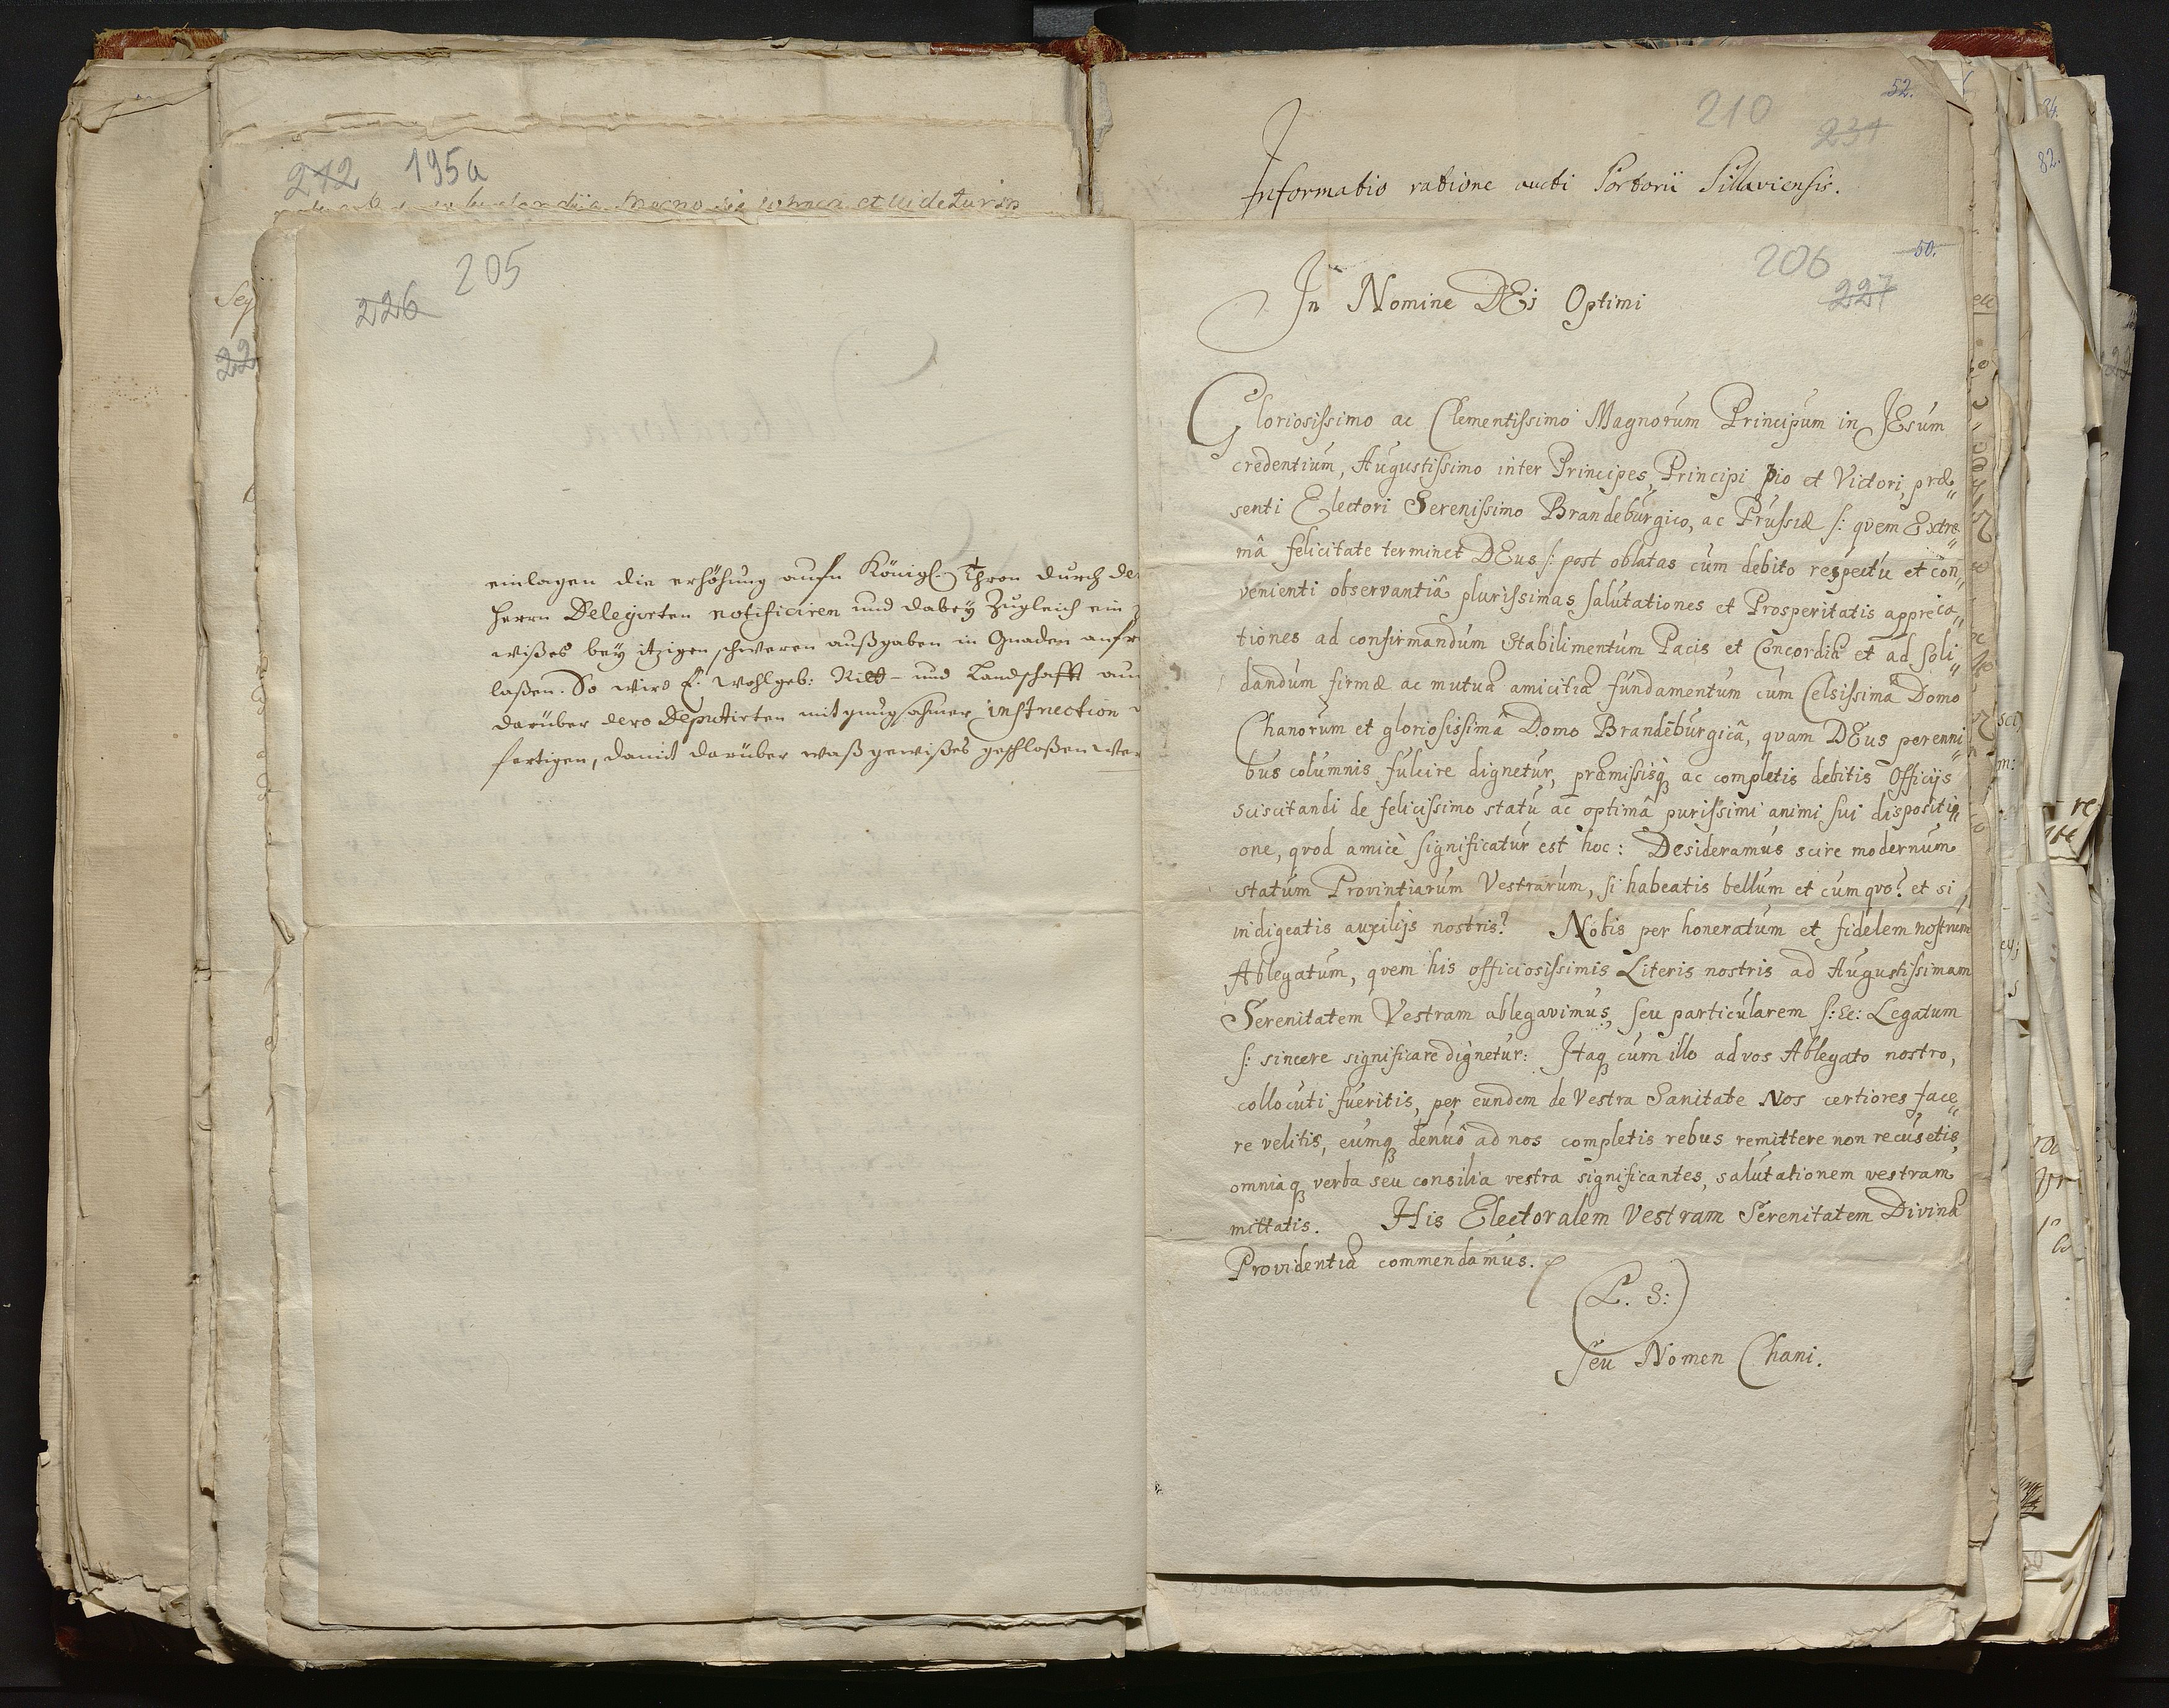 212 195a
226 205
einlagen die erhöhung aufn Königl. Thron durch de
Herrn Delegirten notificiren und dabey Zugleich ein
wißes bey itzigen schweren außgaben in Gnaden
laßen. So wird E. Wohlgeb: Ritt- und Landschafft
darüber dero Deputirten mit gnugsahmer instruction
fertigen, damit darüber waß gewißes geschloßen wer
52.
210
231
Informatio ratione aucti Portorii Pillaviensis.
50.
206
227
In Nomine DEi Optimi
Gloriosissimo ac Clementissimo Magnorum Principum in JEsum
credentium, Augustissimo inter Principes, Principi pio et Victori, præ„
senti Electori Serenissimo Brandeburgico, ac Prussiæ /: qvem Extre„
mâ felicitate terminet DEus /: post oblatas cum debito respectu et con„
venienti observantiâ plurissimas salutationes et Prosperitatis appreca„
tiones ad confirmandum Stabilimentum Pacis et Concordiæ et ad soli„
dandum firmæ ac mutuæ amicitiæ fundamentum cum Celsissimâ Domo
Chanorum et gloriosissimâ Domo Brandeburgicâ, qvam DEus perenni„
bus columnis fulcire dignetur, præmissisq; ac completis debitis Officijs
sciscitandi de felicissimo statu ac optimâ purissimi animi sui dispositi„
one, qvod amicè significatur est hoc: Desideramus scire modernum
statum Provintiarum Vestrarum, si habeatis bellum et cum qvo? et si
indigeatis auxilijs nostris? Nobis per honeratum et fidelem nostrum
Ablegatum, qvem his officiosissimis Literis nostris ad Augustissimam
Serenitatem Vestram ablegavimus, seu particularem /: Ec: Legatum
/: sincere significare dignetur: Itaq; cum illo ad vos Ablegato nostro,
collocuti fueritis, per eundem de Vestra Sanitate Nos certiores face„
re velitis, eumq; denuò ad nos completis rebus remittere non recusetis,
omniaq; verba seu consilia vestra significantes, salutationem vestram
mittatis. His Electoralem Vestram Serenitatem Divinæ
Providentiæ commendamus.
(L. S:)
seu Nomen Chani.
82.